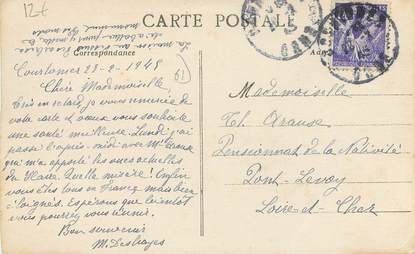 12-
La maison au dessus
CARTE POSTALE
Correspondance
Courtomer 23-9-1945
61
Chère Mademoiselle,
Bien en retard, je vous remercie de
votre carte & vous souhaite
une santé meilleure. Lundi j'ai
passé l'après-midi avec Mme
qui m'a apporté les vues actuelles
du Havre. Quelle misère! Enfin
vous êtes tous en France, mais bien
éloignés. Espérons que bientôt
vous pourrez vous réunir.
Bon souvenir
M. Deshayes
Mademoiselle
Pensionnat de la Nativité
Pont-Levoy
Loire-et-Cher
ORNE